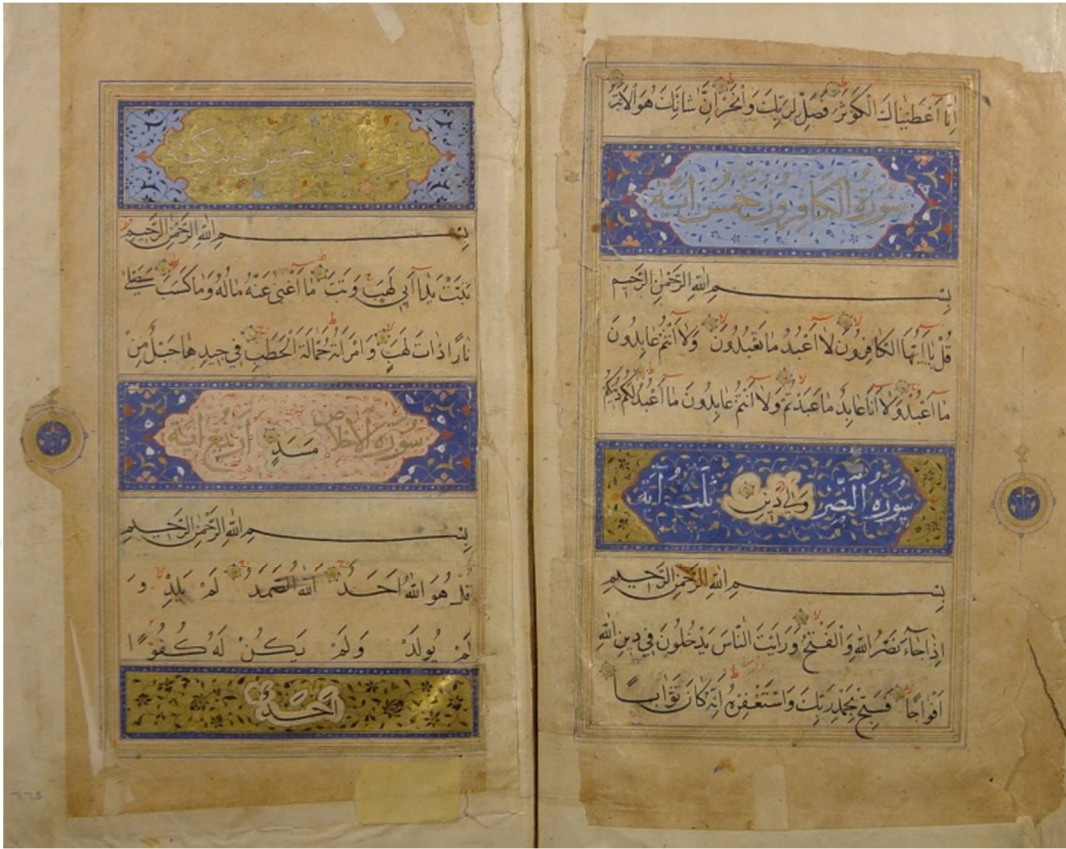 اِنّا اَعْطَيْناكَ الْكَوْثَرَ فَصَلِّ لِرَبِّكَ وَانْحَرْ اِنَّ شانِئَكَ هُوَ الْاَبْتَرُ
سورة الكافرون خمس آية
بِسْمِ اللهِ الرَّحْمٰنِ الرَّحيمِ
قُلْ يا اَيُّهَا الْكافِرُونَ لا اَعْبُدُ ما تَعْبُدُونَ وَلا اَنْتُمْ عابِدُونَ
ما اَعْبُدُ وَلا اَنا عابِدٌ ما عَبَدْتُمْ وَلا اَنْتُمْ عابِدُونَ ما اَعْبُدُ لَكُمْ دينُكُمْ
سُورَةُ النَّصْرِ وَلِيَ دينِ ثَلٰثُ آية
بِسْمِ اللهِ الرَّحْمٰنِ الرَّحيمِ
اِذا جاءَ نَصْرُ اللهِ وَالْفَتْحُ وَرَاَيْتَ النّاسَ يَدْخُلُونَ في دينِ اللهِ
اَفْواجًا فَسَبِّحْ بِحَمْدِ رَبِّكَ وَاسْتَغْفِرْهُ اِنَّهُ كانَ تَوّابًا
خمس
بِسْمِ اللهِ الرَّحْمٰنِ الرَّحيمِ
تَبَّتْ يَدا اَبي لَهَبٍ وَتَبَّ ما اَغْنى عَنْهُ مالُهُ وَما كَسَبَ سَيَصْلى
نارًا ذاتَ لَهَبٍ وَامْرَاَتُهُ حَمّالَةَ الْحَطَبِ في جيدِها حَبْلٌ مِنْ
سورة الاخلاص مَسَدٍ اربع آية
بِسْمِ اللهِ الرَّحْمٰنِ الرَّحيمِ
قُلْ هُوَ اللهُ اَحَدٌ اَللهُ الصَّمَدُ لَمْ يَلِدْ وَ
لَمْ يُولَدْ وَلَمْ يَكُنْ لَهُ كُفُوًا
اَحَدٌ